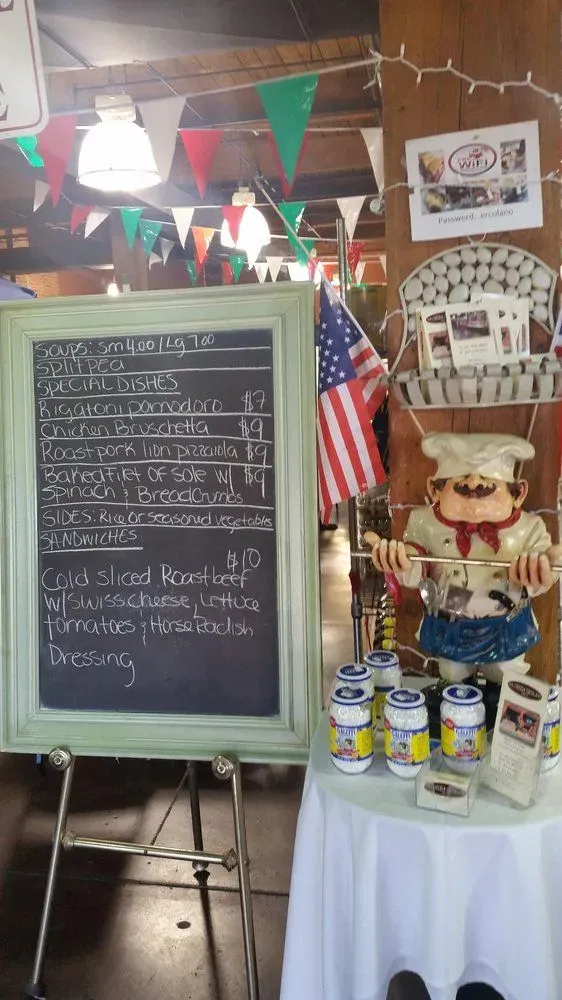 E
SOUPS: Sm 4.00 / Lg 7.00
SPLIT PEA
SPECIAL DISHES
Rigatoni pomodoro $7
Chicken Bruschetta $9
Roast pork lion pizzaiola $9
Baked Filet of Sole w/ $9
Spinach & BreadCrumbs
SIDES: Rice or seasoned vegetables
SANDWICHES
$10
Cold sliced Roast beef
w/ Swiss cheese, Lettuce
tomatoes & HorseRadish
Dressing
WiFi
Password: ercolano
GALEFFI
GALEFFI
GALEFFI